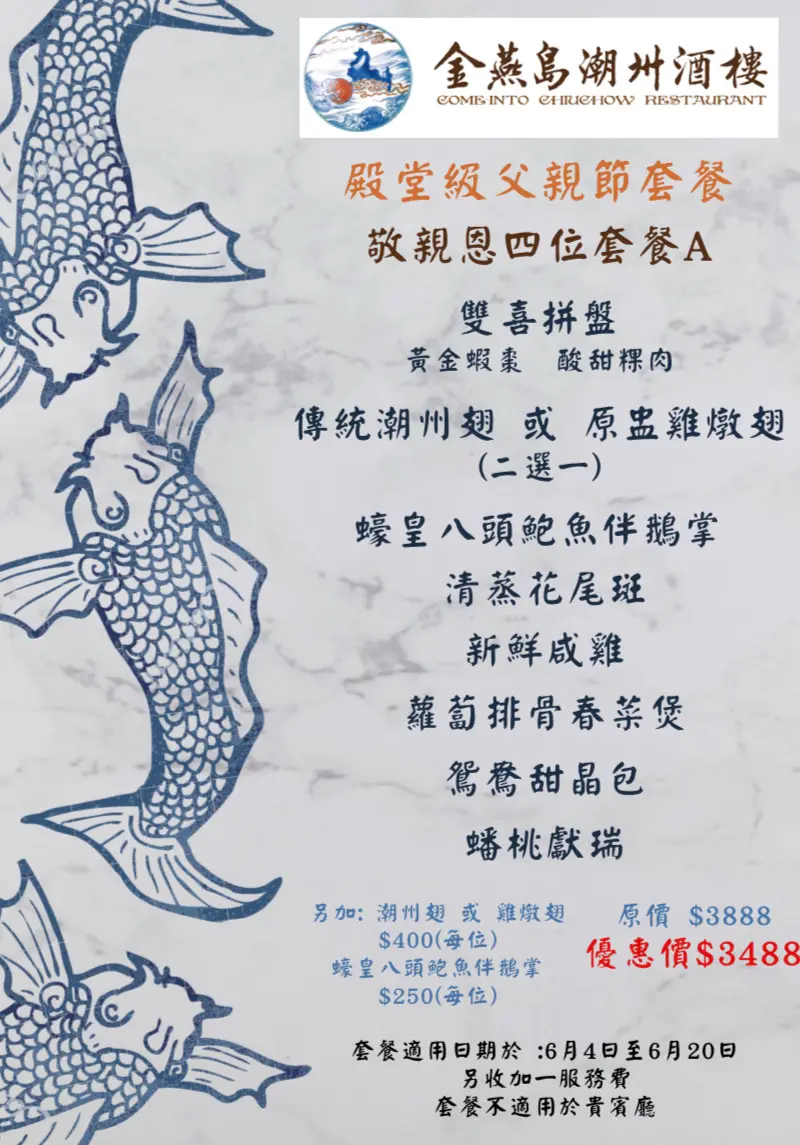 金燕島潮州酒樓
COME-INTO CHIUCHOW RESTAURANT
殿堂級父親節套餐
敬親恩四位套餐A
雙喜拼盤
黃金蝦棗 酸甜粿肉
傳統潮州翅 或 原盅雞燉翅
(二選一)
蠔皇八頭鮑魚伴鵝掌
清蒸花尾斑
新鮮咸雞
蘿蔔排骨春菜煲
鴛鴦甜晶包
蟠桃獻瑞
另加: 潮州翅 或 雞燉翅
$400(每位)
蠔皇八頭鮑魚伴鵝掌
$250(每位)
原價 $3888
優惠價$3488
套餐適用日期於 :6月4日至6月20日
另收加一服務費
套餐不適用於貴賓廳